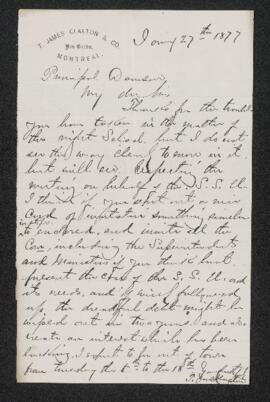 T. JAMES CLAXTON & CO.
MONTREAL.
Jany 27th 1877
Principal Dawson,
My dear Sir
Thanks for the trouble
you have taken in the matter of
this night School, but I do not
see the way clear to move in it.
but will see. Respecting the
meeting on behalf of the S. S. U.
I think if you sent out a nice
Card of invitation something
enclosed, and invite all the
including the Superintendents
and Ministers if you think best
present the of the S. S. U. and
its needs, and if well followed
up the dreadful debt might be
wiped out in two years and also
create an interest which has been
lacking. I expect to be out of town
from Tuesday the 6th to the 18th